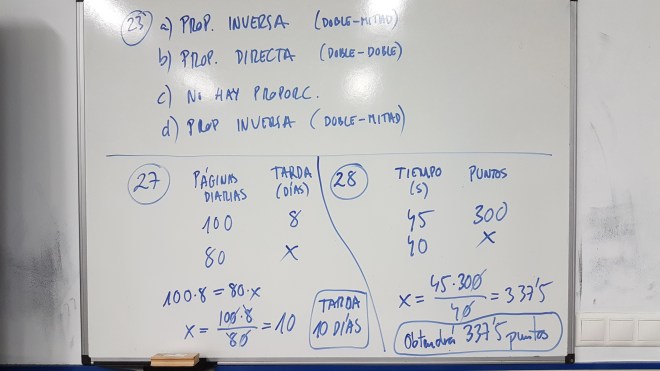 23 a) PROP. INVERSA (DOBLE-MITAD)
b) PROP. DIRECTA (DOBLE-DOBLE)
c) NO HAY PROPORC.
d) PROP INVERSA (DOBLE-MITAD)
27 PÁGINAS DIARIAS TARDA (DÍAS)
100 8
80 X
100·8=80·x
x = 100·8/80 = 10
TARDA
10 DÍAS
28 TIEMPO (s) PUNTOS
45 300
40 X
x = 45·300/40 = 337'5
Obtendrá 337'5 puntos